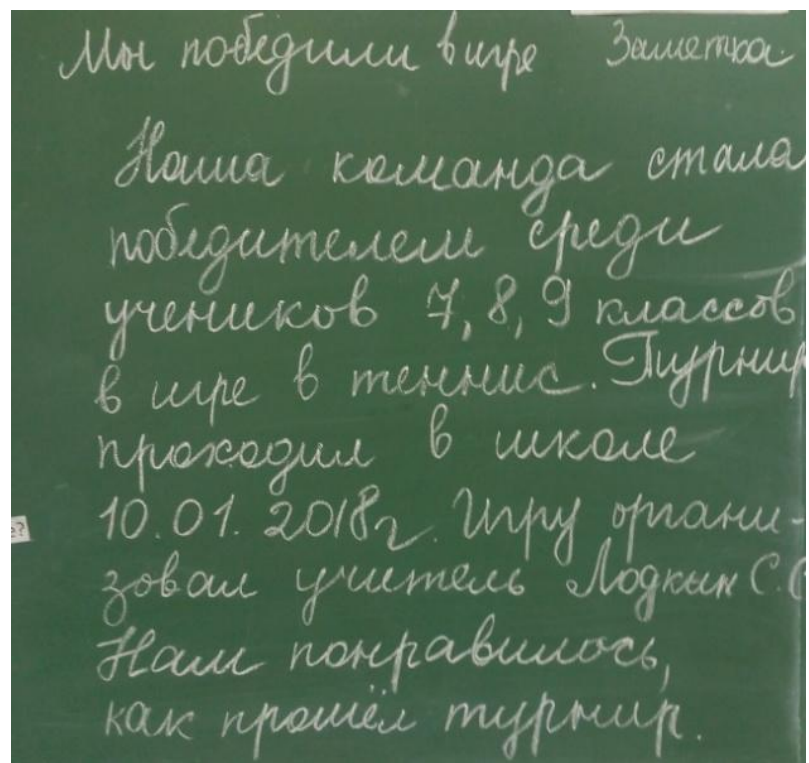 Мы победили в игре Заметка.
Наша команда стала
победителем среди
учеников 7, 8, 9 классов
в игре в теннис. Турнир
проходил в школе
10.01.2018г. Игру органи-
зовал учитель Лодкин С.С
Нам понравилось,
как прошёл турнир.